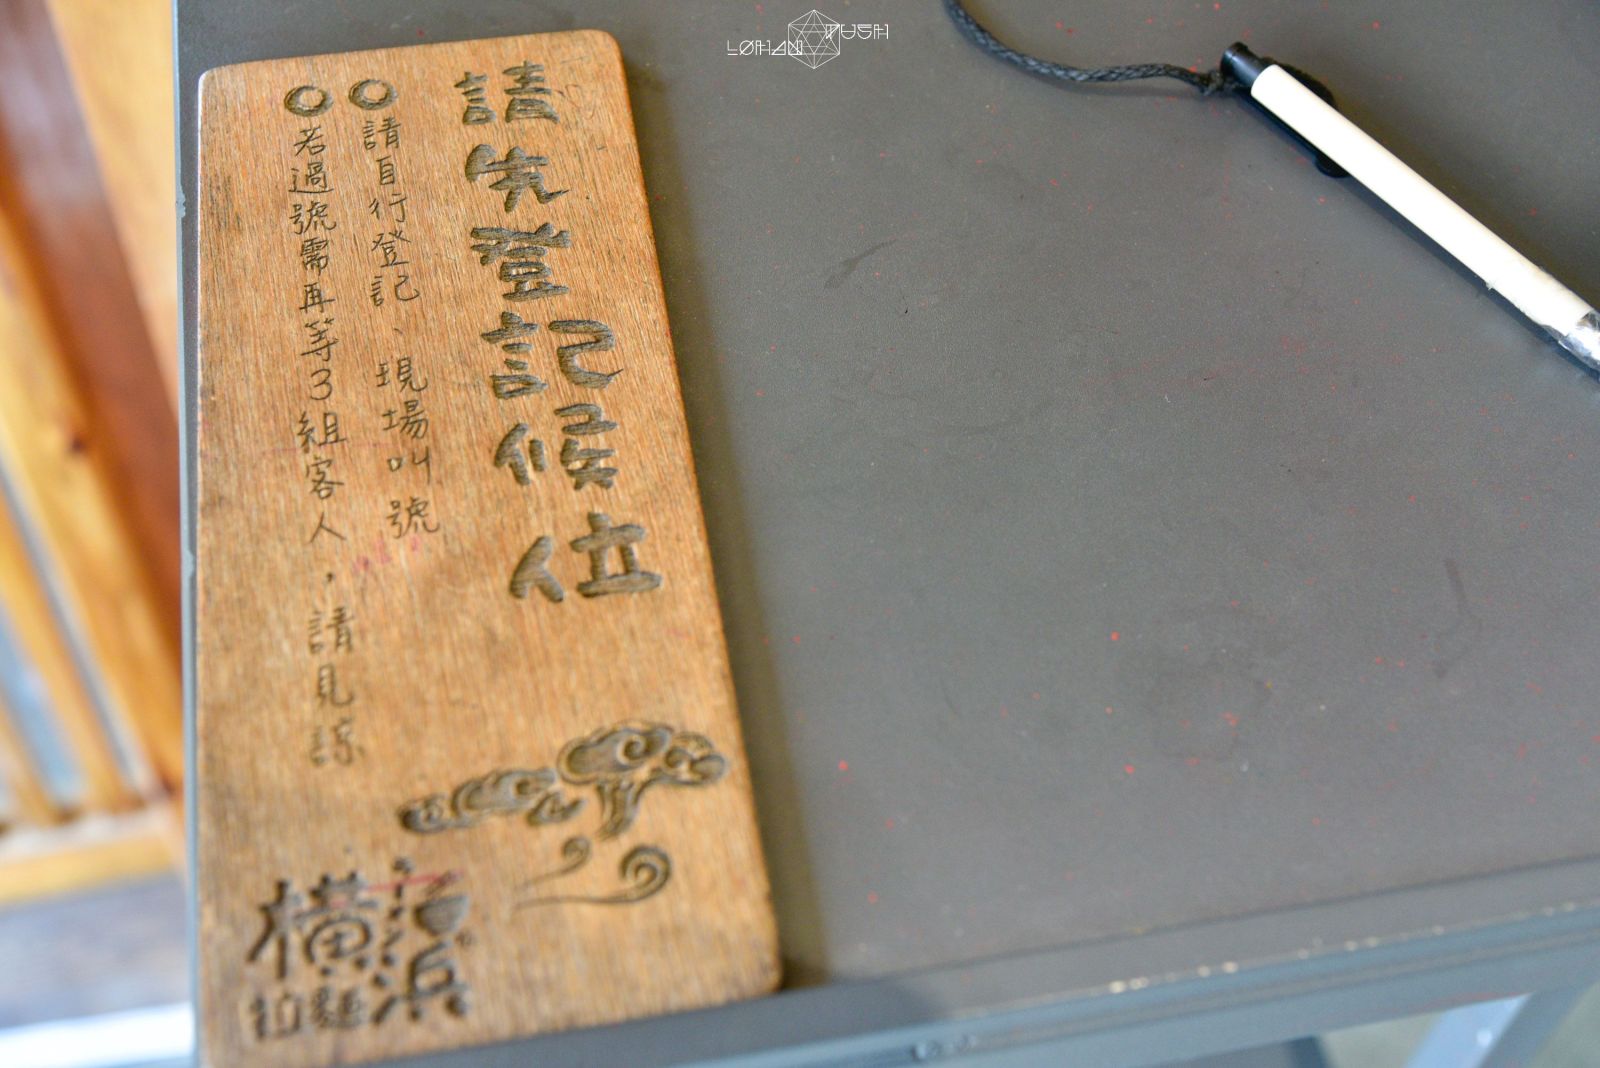 請先登記候位
○請自行登記、現場叫號
○若過號需再等3組客人，請見諒
橫濱
拉麵
LOHAN PUSH